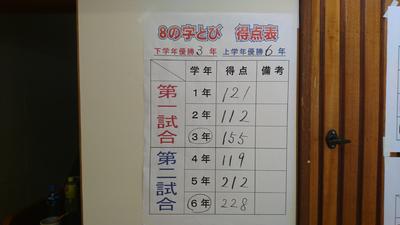 8の字とび 得点表
下学年優勝3年 上学年優勝6年
学年 得点 備考
第一試合
1年 121
2年 112
3年 155
第二試合
4年 119
5年 212
6年 228